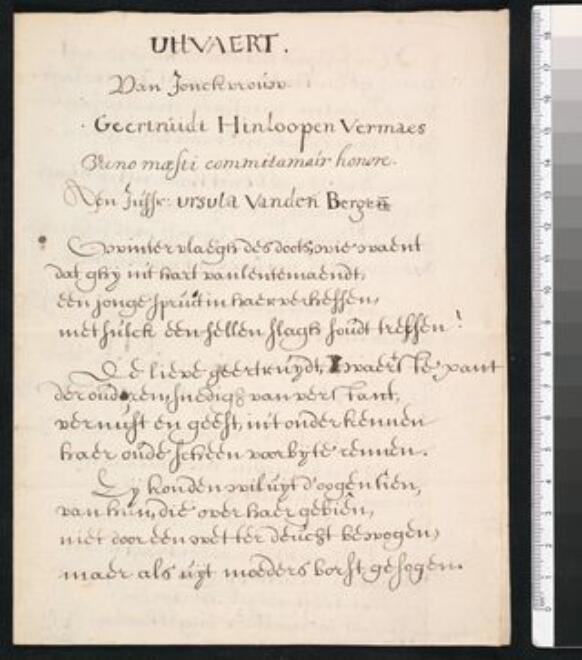 UITVAERT.
Van Jonckvrouw
Geertruidt Hinloopen Vermaes
Pleno mæsti commitamair honore.
Aen Juffr: Ursula Vanden Bergen
O wintervlaegh des doots, wie waent
dat ghy in't hart van lentemaendt,
een jonge spruit in haer verheffen,
met sulck een fellen slagh soudt treffen!
De lieve geertruydt, 
der ouderen, snedigh van verstant,
vernuft en geest, in't onderkennen
haer oude scheen voorby te rennen.
Sy konden wil uyt d'oogen sien,
van hun, die over haer gebiên,
niet door een wet ter deucht bewogen,
maer als uyt moeders borst gesogen.